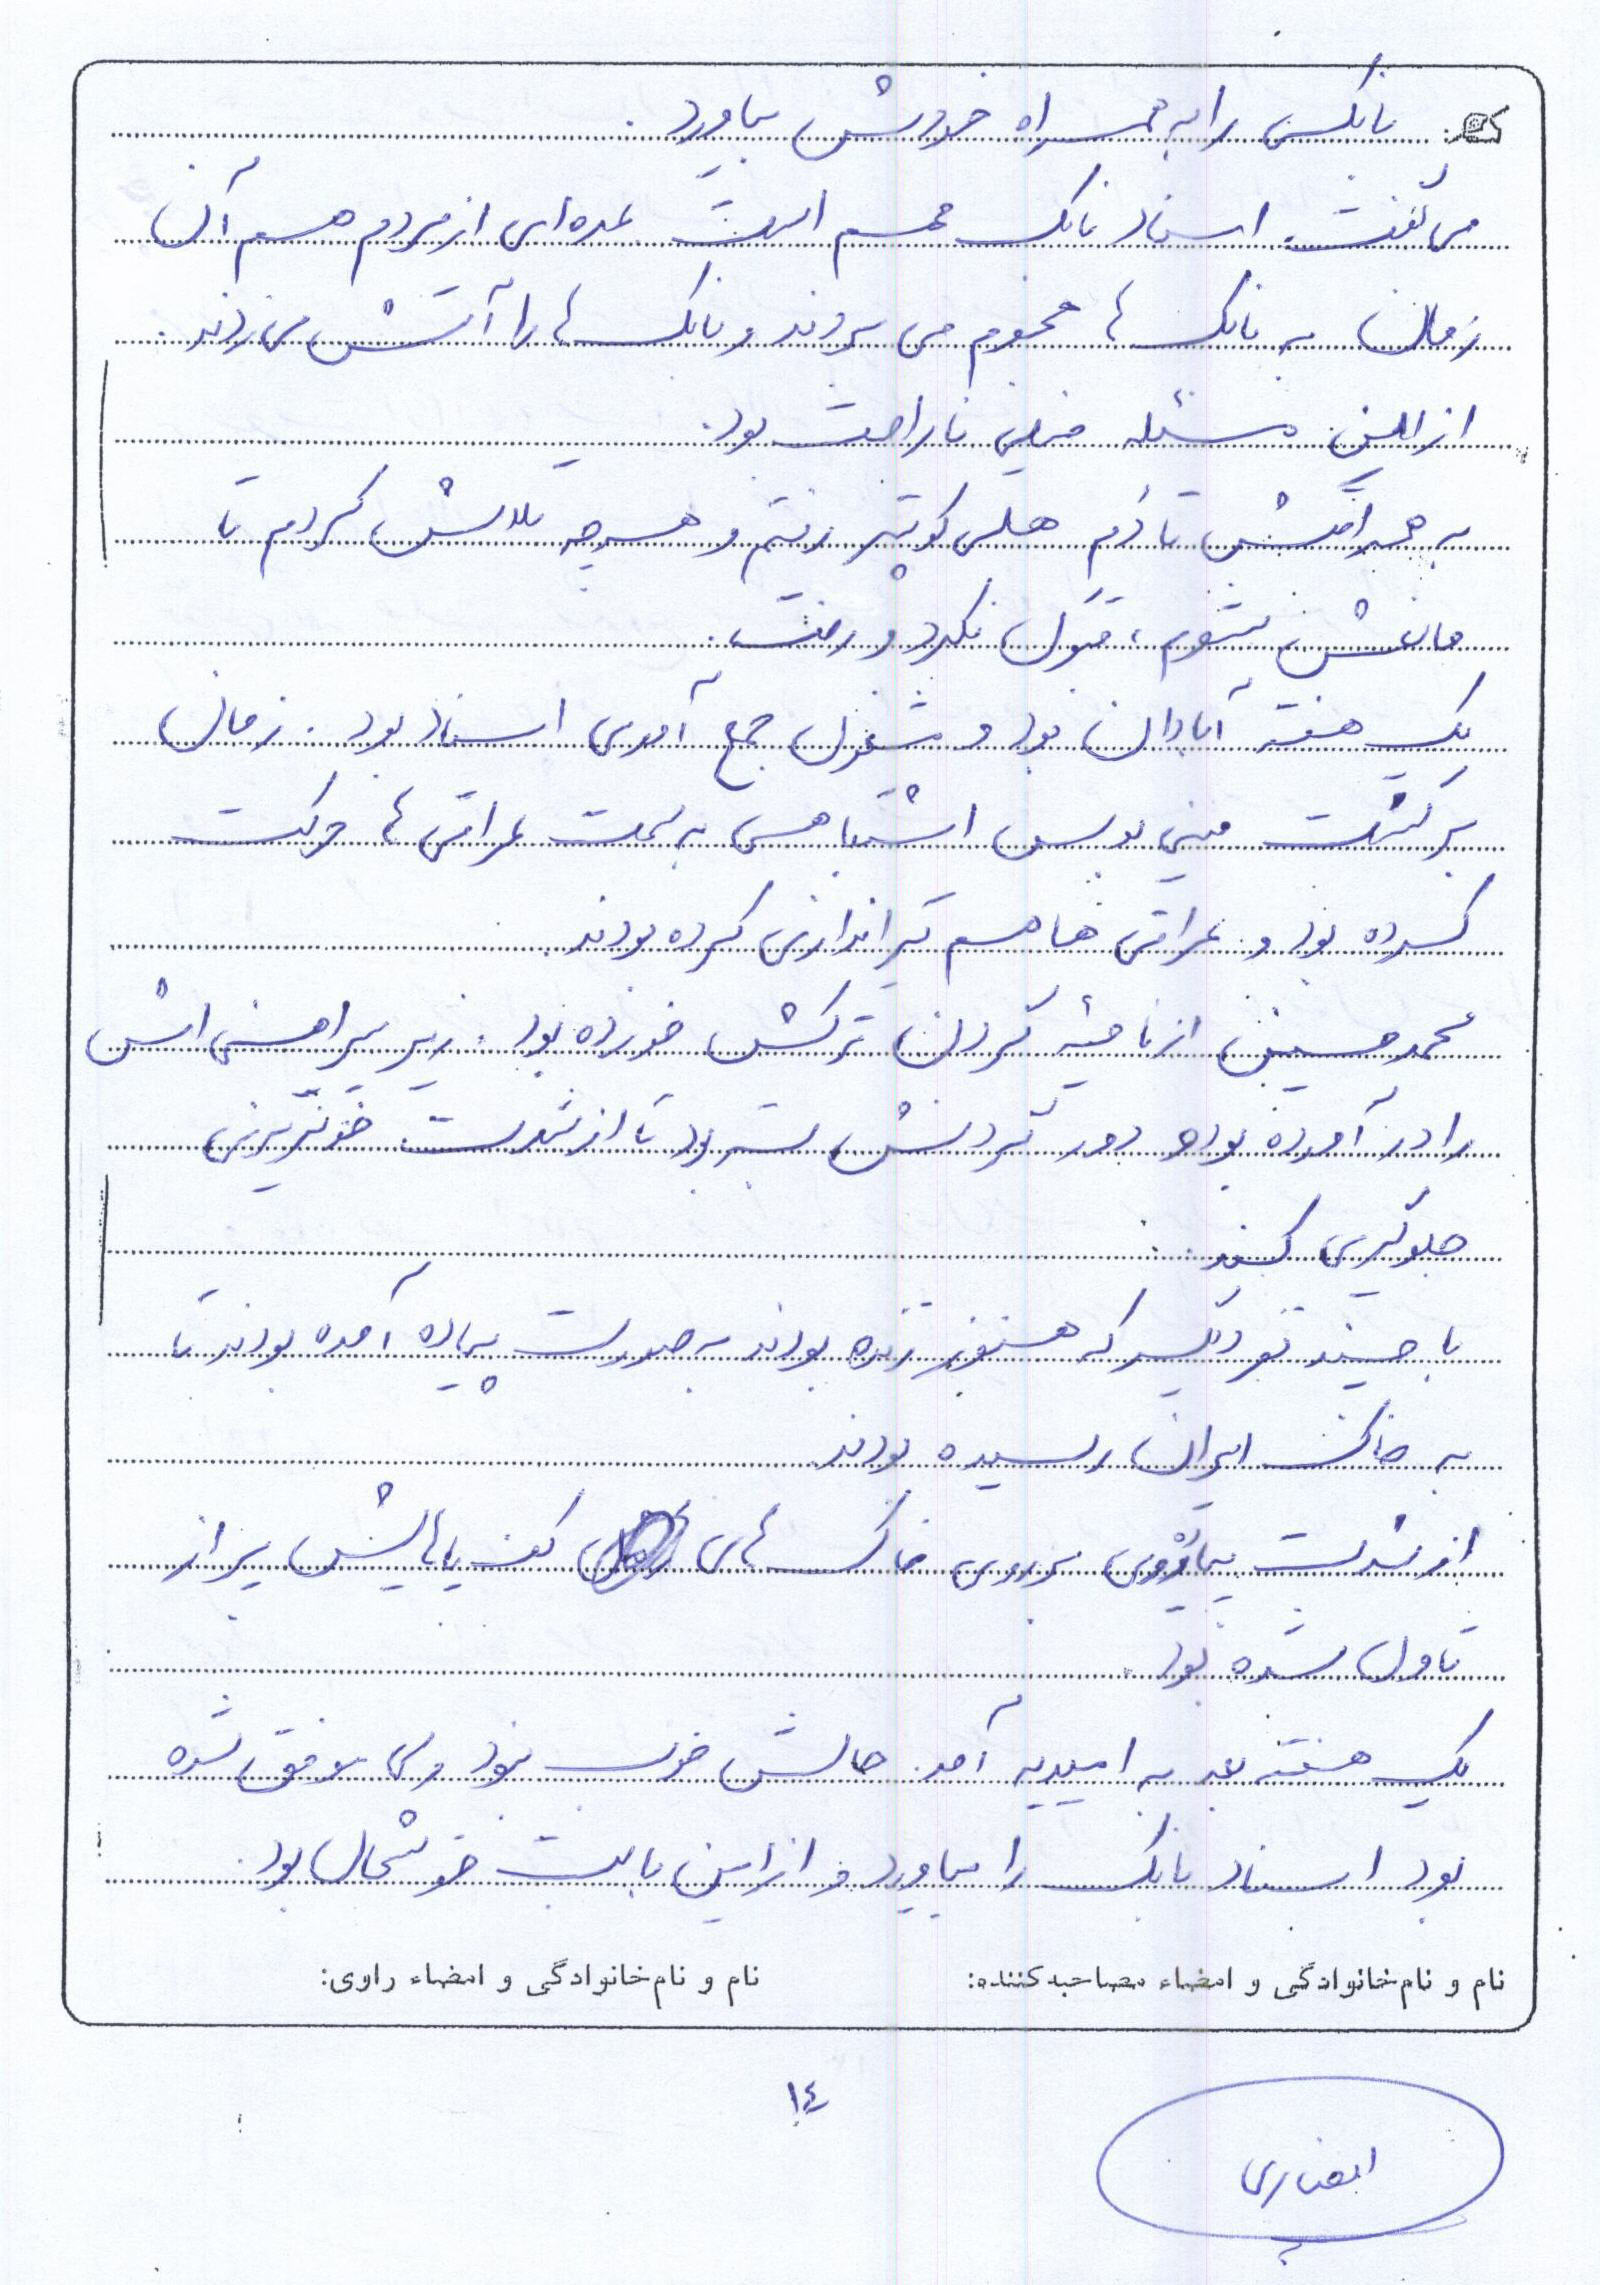 بانکش را به همراه خودش بیاورد.
می گفت اسناد بانک مهم است عده ای از مردم هم آن
زمان به بانک ها هجوم می بردند و بانک ها را آتش می زدند.
از این مسئله خیلی ناراحت بود.
به همراهش تا دَم هلی کوپتر رفتم و هرچه تلاش کردم تا
مانعش بشوم، قبول نکرد و رفت.
یک هفته آبادان بود و مشغول جمع آوری اسناد بود. زمان
برگشت مینی بوس اشتباهی به سمت عراقی ها حرکت
کرده بود و عراقی ها هم تیراندازی کرده بودند.
محمدحسین از ناحیه گردن ترکش خورده بود. زیر پیراهنی اش
را در آورده بود و دور گردنش بسته بود تا از شدت خونریزی
جلوگیری کند.
با چند نفر دیگر که هنوز زنده بودند به صورت پیاده آمده بودند تا
به خاک ایران رسیده بودند.
از شدت پیاده روی بر روی خاک های کف پاهایش پر از
تاول شده بود.
یک هفته بعد به امیدیه آمد. حالش خوب نبود ولی موفق شده
بود اسناد بانک را بیاورد و از این بابت خوشحال بود.
نام و نام خانوادگی و امضاء مصاحبه کننده: نام و نام خانوادگی و امضاء راوی:
۱٤
انصاری